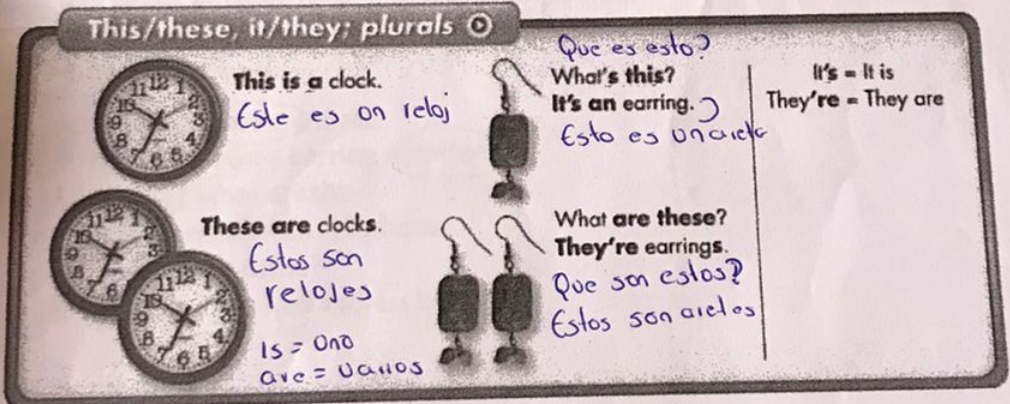 This/these, it/they; plurals
This is a clock.
Este es on reloj
Que es esto?
What's this?
It's an earring.
Esto es un arete
It's = It is
They're = They are
These are clocks.
Estos son
relojes
is = uno
are = varios
What are these?
They're earrings.
Que son estos?
Estos son aretes